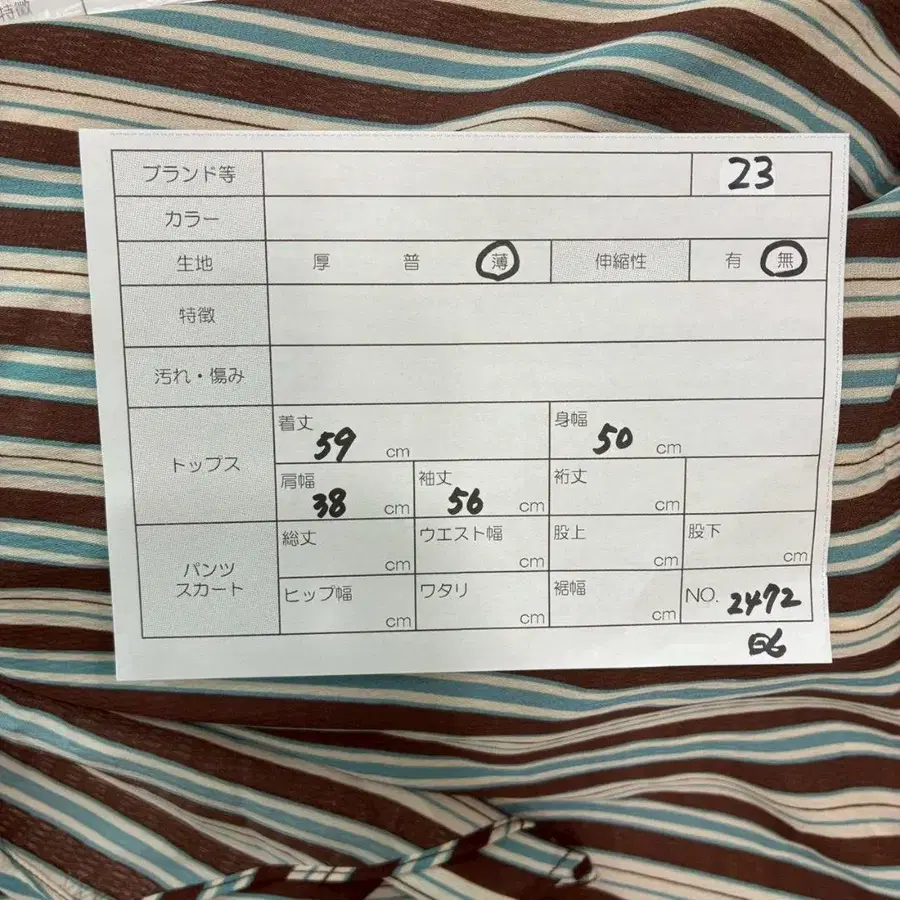 特徴
ブランド等 23
カラー
生地 厚 普 薄 伸縮性 有 無
特徴
汚れ・傷み
トップス
着丈 59 cm 身幅 50 cm
肩幅 38 cm 袖丈 56 cm 裄丈 cm
パンツ
スカート
総丈 cm ウエスト幅 cm 股上 cm 股下 cm
ヒップ幅 cm ワタリ cm 裾幅 cm NO. 2472